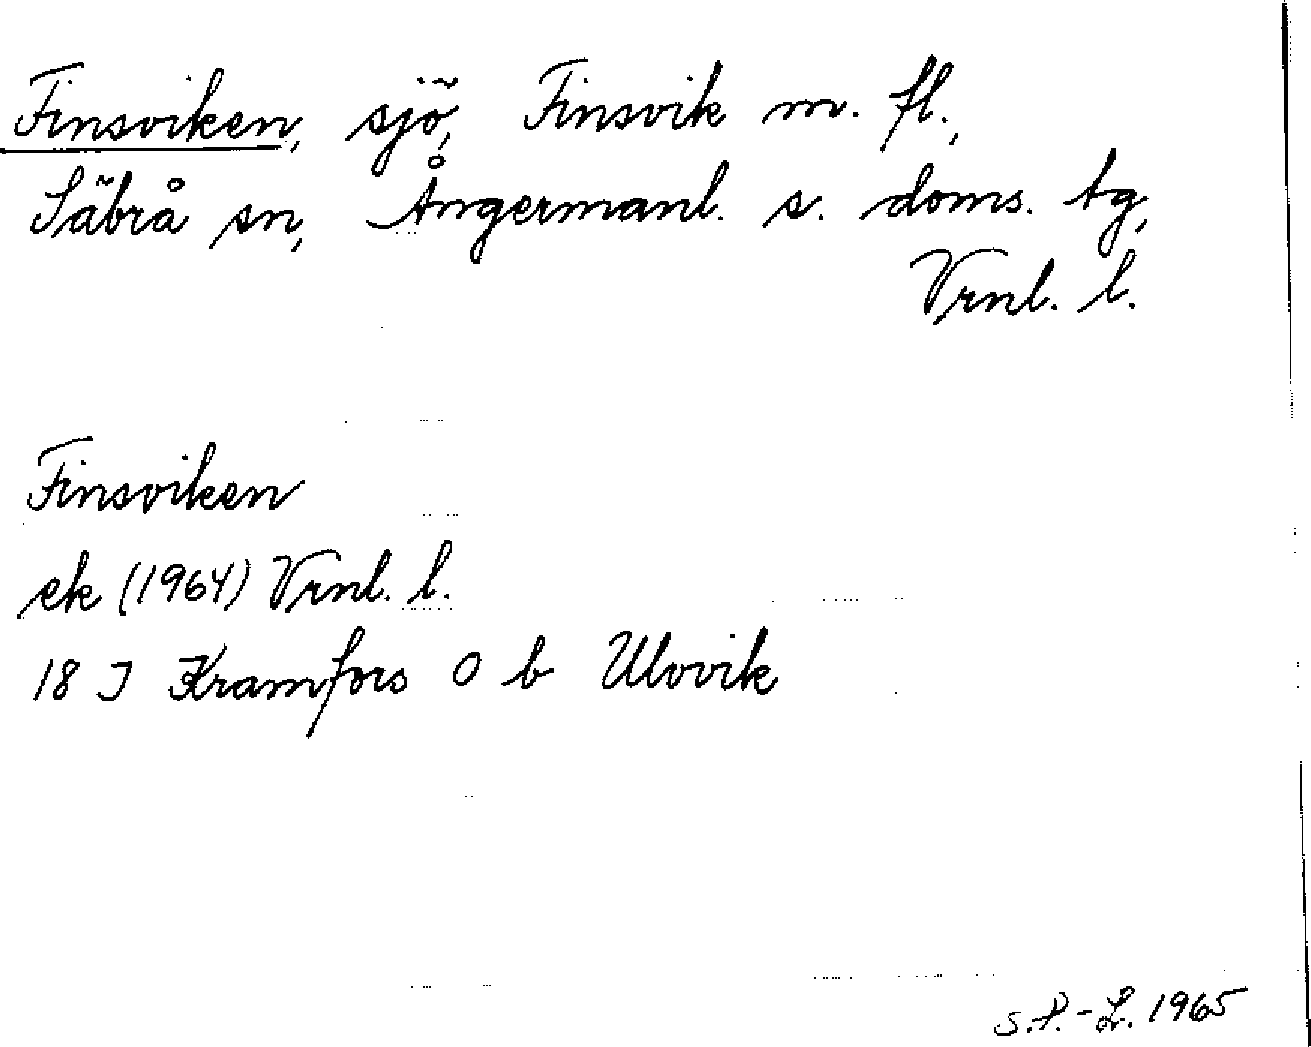 Finsviken, sjö, Finsvik m. fl.,
Säbrå sn, Ångermanl. s. doms. tg,
Vrnl. l.
Finsviken
ek (1964) Vrnl. l.
18 J Kramfors O b Ulvvik
S.P.-L. 1965